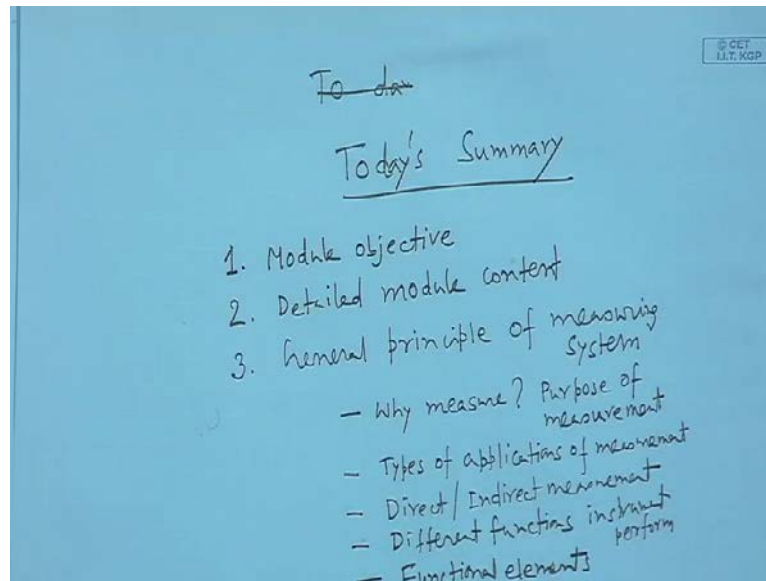 © CET
I.I.T. KGP
To da
Today's Summary
1. Module objective
2. Detailed module content
3. General principle of measuring
system
- Why measure? Purpose of
measurement
- Types of applications of measurement
- Direct / Indirect measurement
- Different functions instrument
perform
- Functional elements